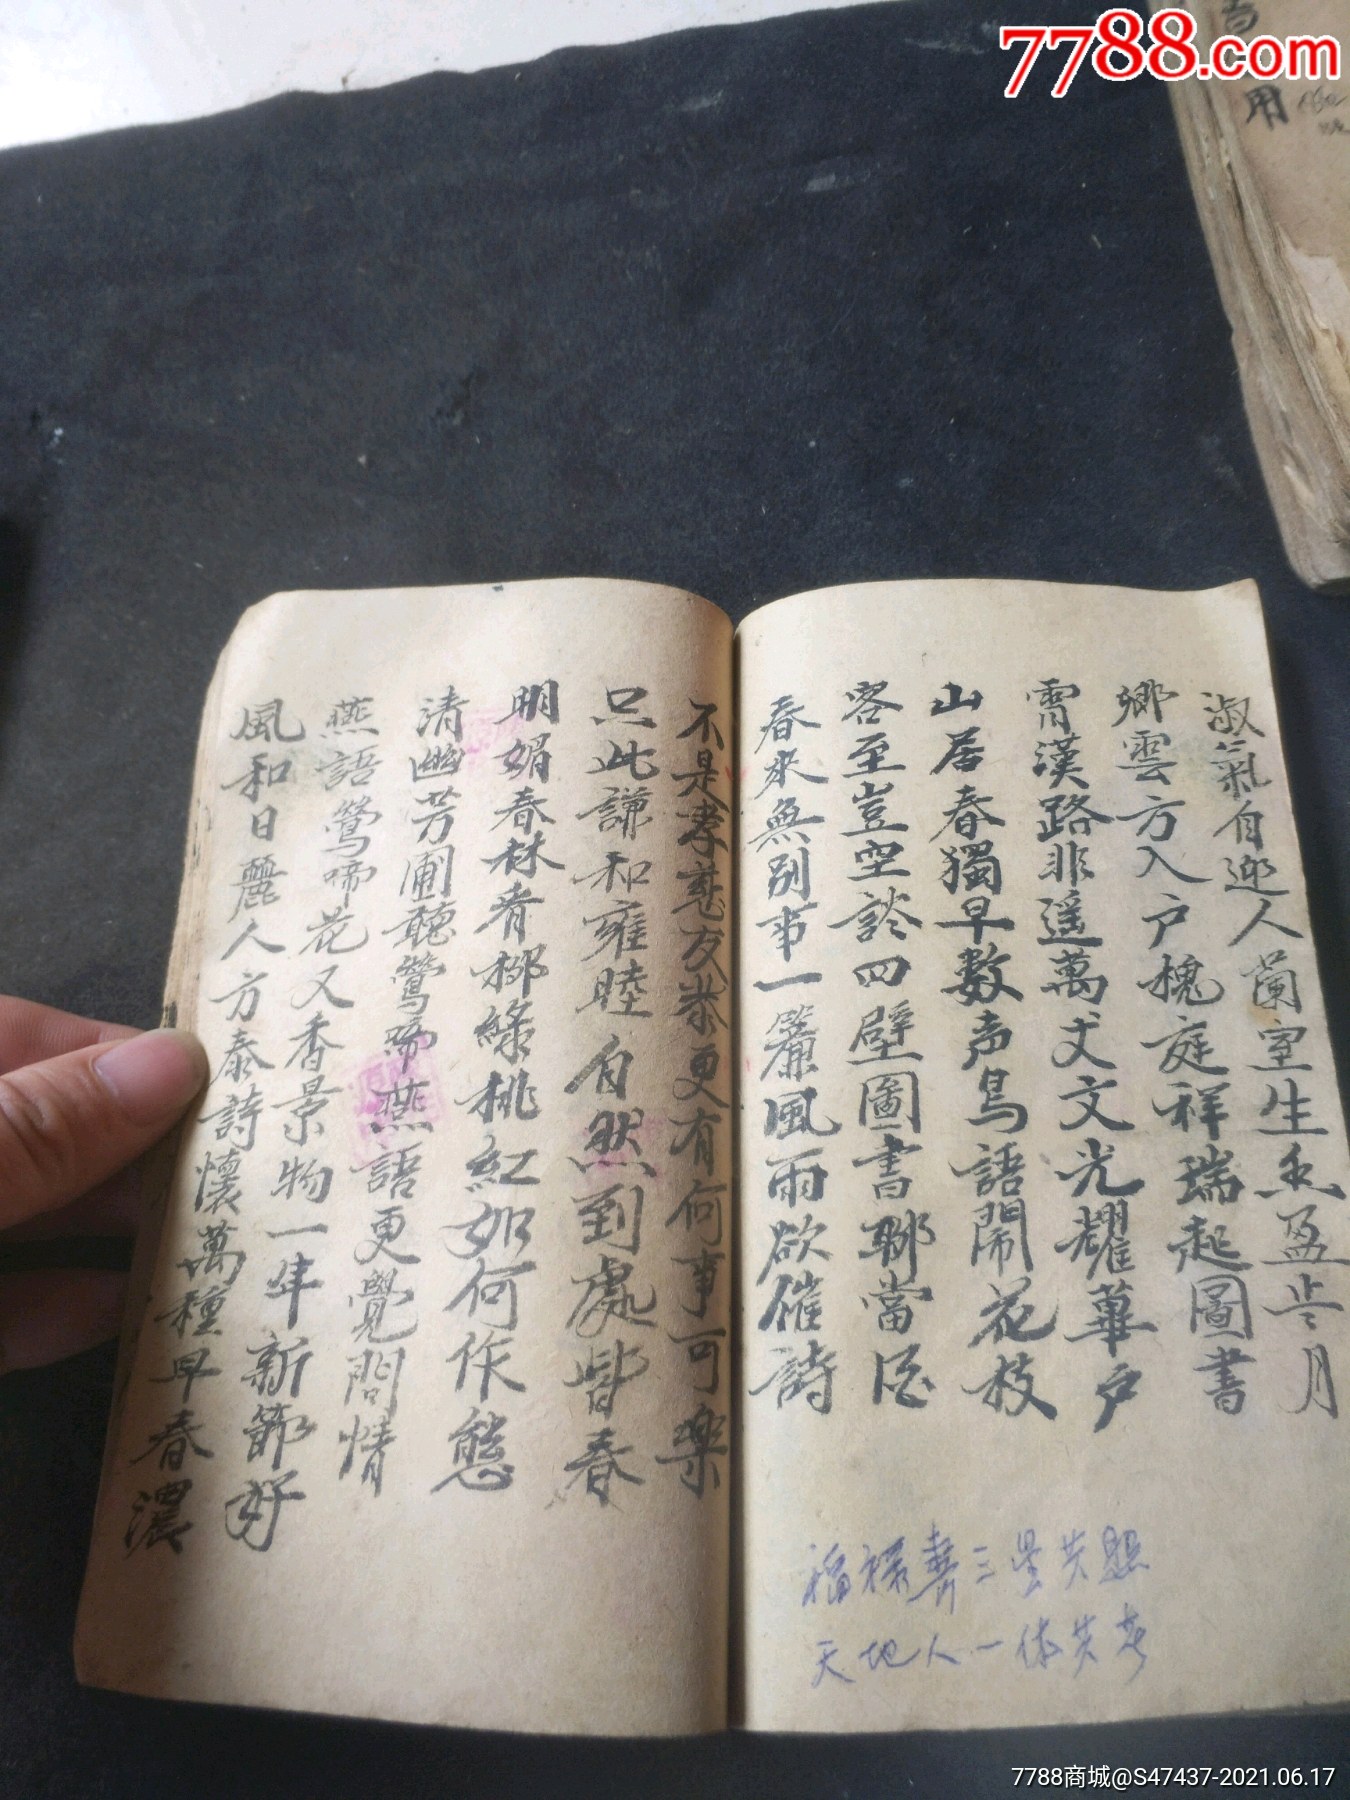 7788.com
用
淑氣自迎人蘭室生香盈岁月
卿雲方入户槐庭祥瑞起圖書
霄漢路非遥萬丈文光耀蓽户
山居春獨早數声鳥語鬧花枝
客至豈空談四壁圖書聊當酒
春來無别事一簾風雨欲催詩
福禄壽三星共照
天地人一体共春
不是孝慈友恭更有何事可樂
只此謙和雍睦自然到處皆春
明媚春林青柳綠桃紅如何作態
清幽芳圃聽鶯啼燕語更覺問情
燕語鶯啼花又香景物一年新節好
風和日麗人方泰詩懷萬種早春濃
7788商城@S47437-2021.06.17